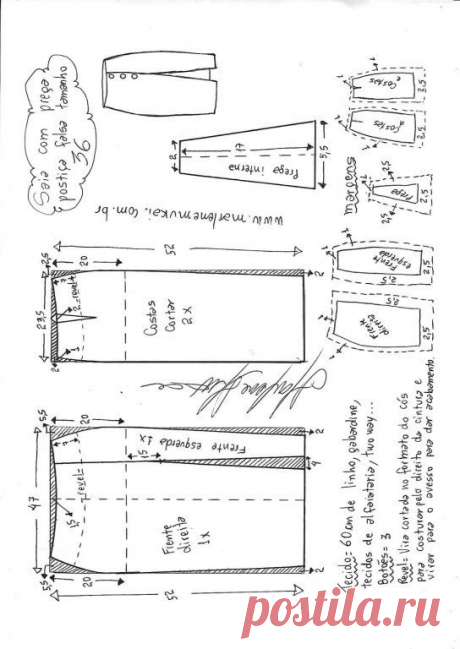 Saia com prega
postiça falsa tamanho
36
www.marlenemukai.com.br
2
17
Prega interna
5,5
margens
1
Costas
2,5
1
Costas
2,5
1
Prega
2,5
2,5
Frente
esquerda
2,5
2,5
Frente
direita
2,5
2,5
52
20
2,5
23,5
7
2
revel
1
2
Costas
Cortar
2x
2
5,5
20
47
7
Frente esquerda 1x
15
revel
15
Frente
direita
1x
2
4
5,5
20
52
2
Tecido = 60cm de linho, gabardine,
tecidos de alfaiataria, two way...
Botões = 3
Revel = Vira cortada no formato do cós
para costurar pelo direito da cintura e
virar para o avesso para dar acabamento.
postila.ru